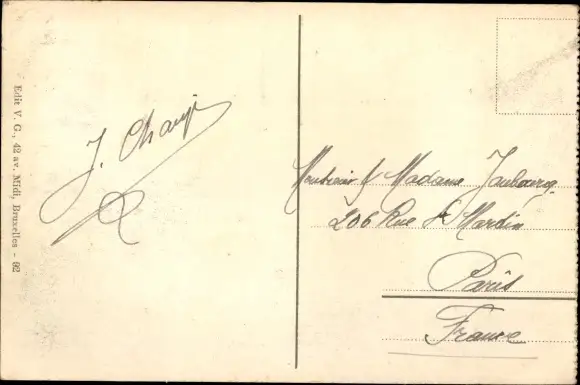 Edit V. G., 42 av. Midi, Bruxelles - 92
J.
Monsieur & Madame
206 Rue St Martin
Paris
France